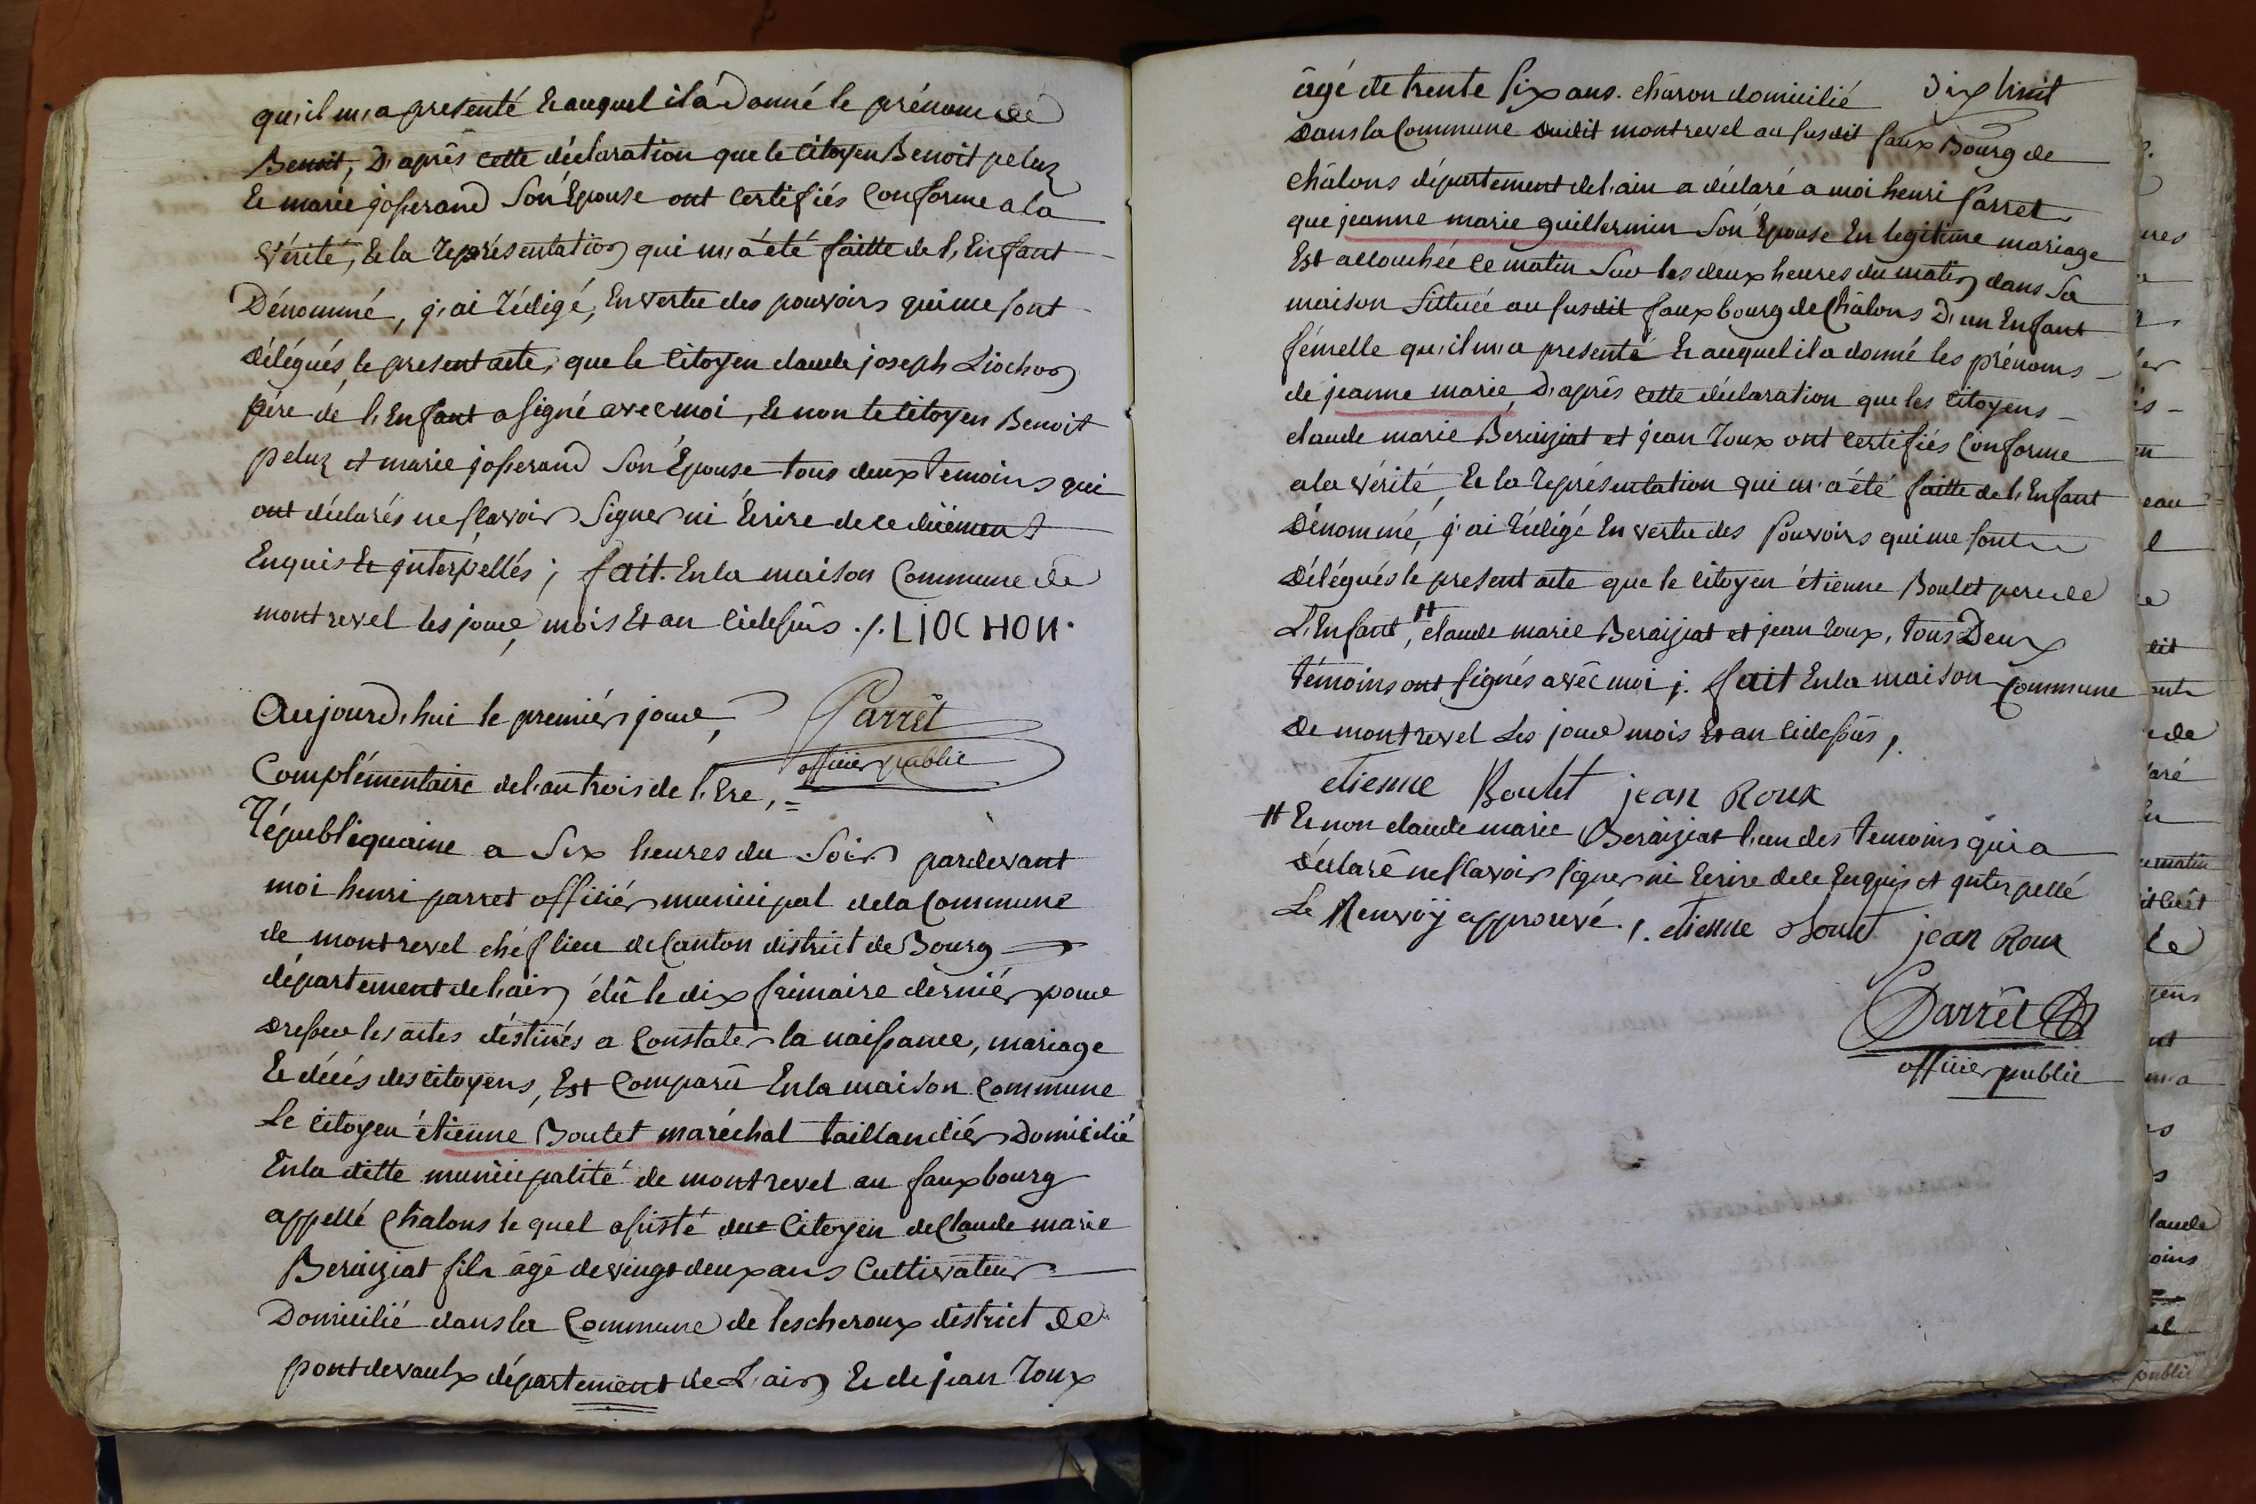 qu'il m'a presenté & auquel il a Donné le prénom de
Benoit, D'après cette déclaration que le Citoyen Benoit peluz
& marie josserand Son Epouse ont Certifiés Conforme a la
Vérité, & la représentation qui m'a été faitte de l'Enfant
Dénommé, j'ai rédigé, En vertu des pouvoirs qui me sont
délégués, le present acte, que le Citoyen claude joseph Liochon
père de l'Enfant a signé avec moi, & non le Citoyen Benoit
peluz et marie josserand Son Epouse tous deux temoins qui
ont déclarés ne scavoir Signer ni Ecrire de ce dûement
Enquis & interpellés ; fait En la maison Commune de
montrevel les jour, mois Et an Cidessus ./. LIOCHON.
Parrêt
officier public
Aujourd'hui le premier jour,
Complémentaire de l'an trois de l'Ere, =
républiquaine a Six heures du Soir pardevant
moi henri parret officier municipal de la Commune
de montrevel chéf lieu de Canton district de Bourg
département de l'ain élû le dix frimaire dernier pour
Dresser les actes déstinés a Constater la naissance, mariage
& décès des citoyens, Est Comparû En la maison Commune
Le Citoyen étienne Boulet maréchal taillandiér Domicilié
En la ditte municipalité de montrevel au fauxbourg
appellé Chalons le quel assisté du Citoyen de Claude marie
Beraiziat fils âgé de vingt deux ans Cultivateur
Domicilié dans la Commune de lescheroux district de
pontdevaulx département de L'ain & de jean roux
dix huit
âgé de trente six ans. charon domicilié
Dans la Commune dudit montrevel au susdit faux Bourg de
châlons département de l'ain a déclaré a moi henri Parret
que jeanne marie guillermin Son Epouse En legitime mariage
Est accouchée ce matin Sur les deux heures du matin dans Sa
maison Sittuée au susdit fauxbourg de Châlons D'un Enfant
fémelle qu'il m'a presenté & auquel il a donné les prénoms
de jeanne marie D'après cette déclaration que les Citoyens
claude marie Beraiziat et jean roux ont certifiés Conforme
a la vérité, & la représentation qui m'a été faitte de l'Enfant
Dénommé, j'ai rédigé En vertu des Pouvoirs qui me sont
délégués le present acte que le Citoyen étienne Boulet pere de
L'Enfant, # claude marie Beraiziat et jean roux, tous Deux
témoins ont signés avec moi ;. fait En la maison Commune
De montrevel Les jour mois Et an Cidessus ,.
etienne Boulet jean Roux
# & non claude marie Beraiziat l'un des temoins qui a
Déclaré ne scavoir signer ni Ecrire de ce Enquis et interpellé
Le Renvoÿ approuvé ./. etienne boulet jean Roux
Parrêt
officier public